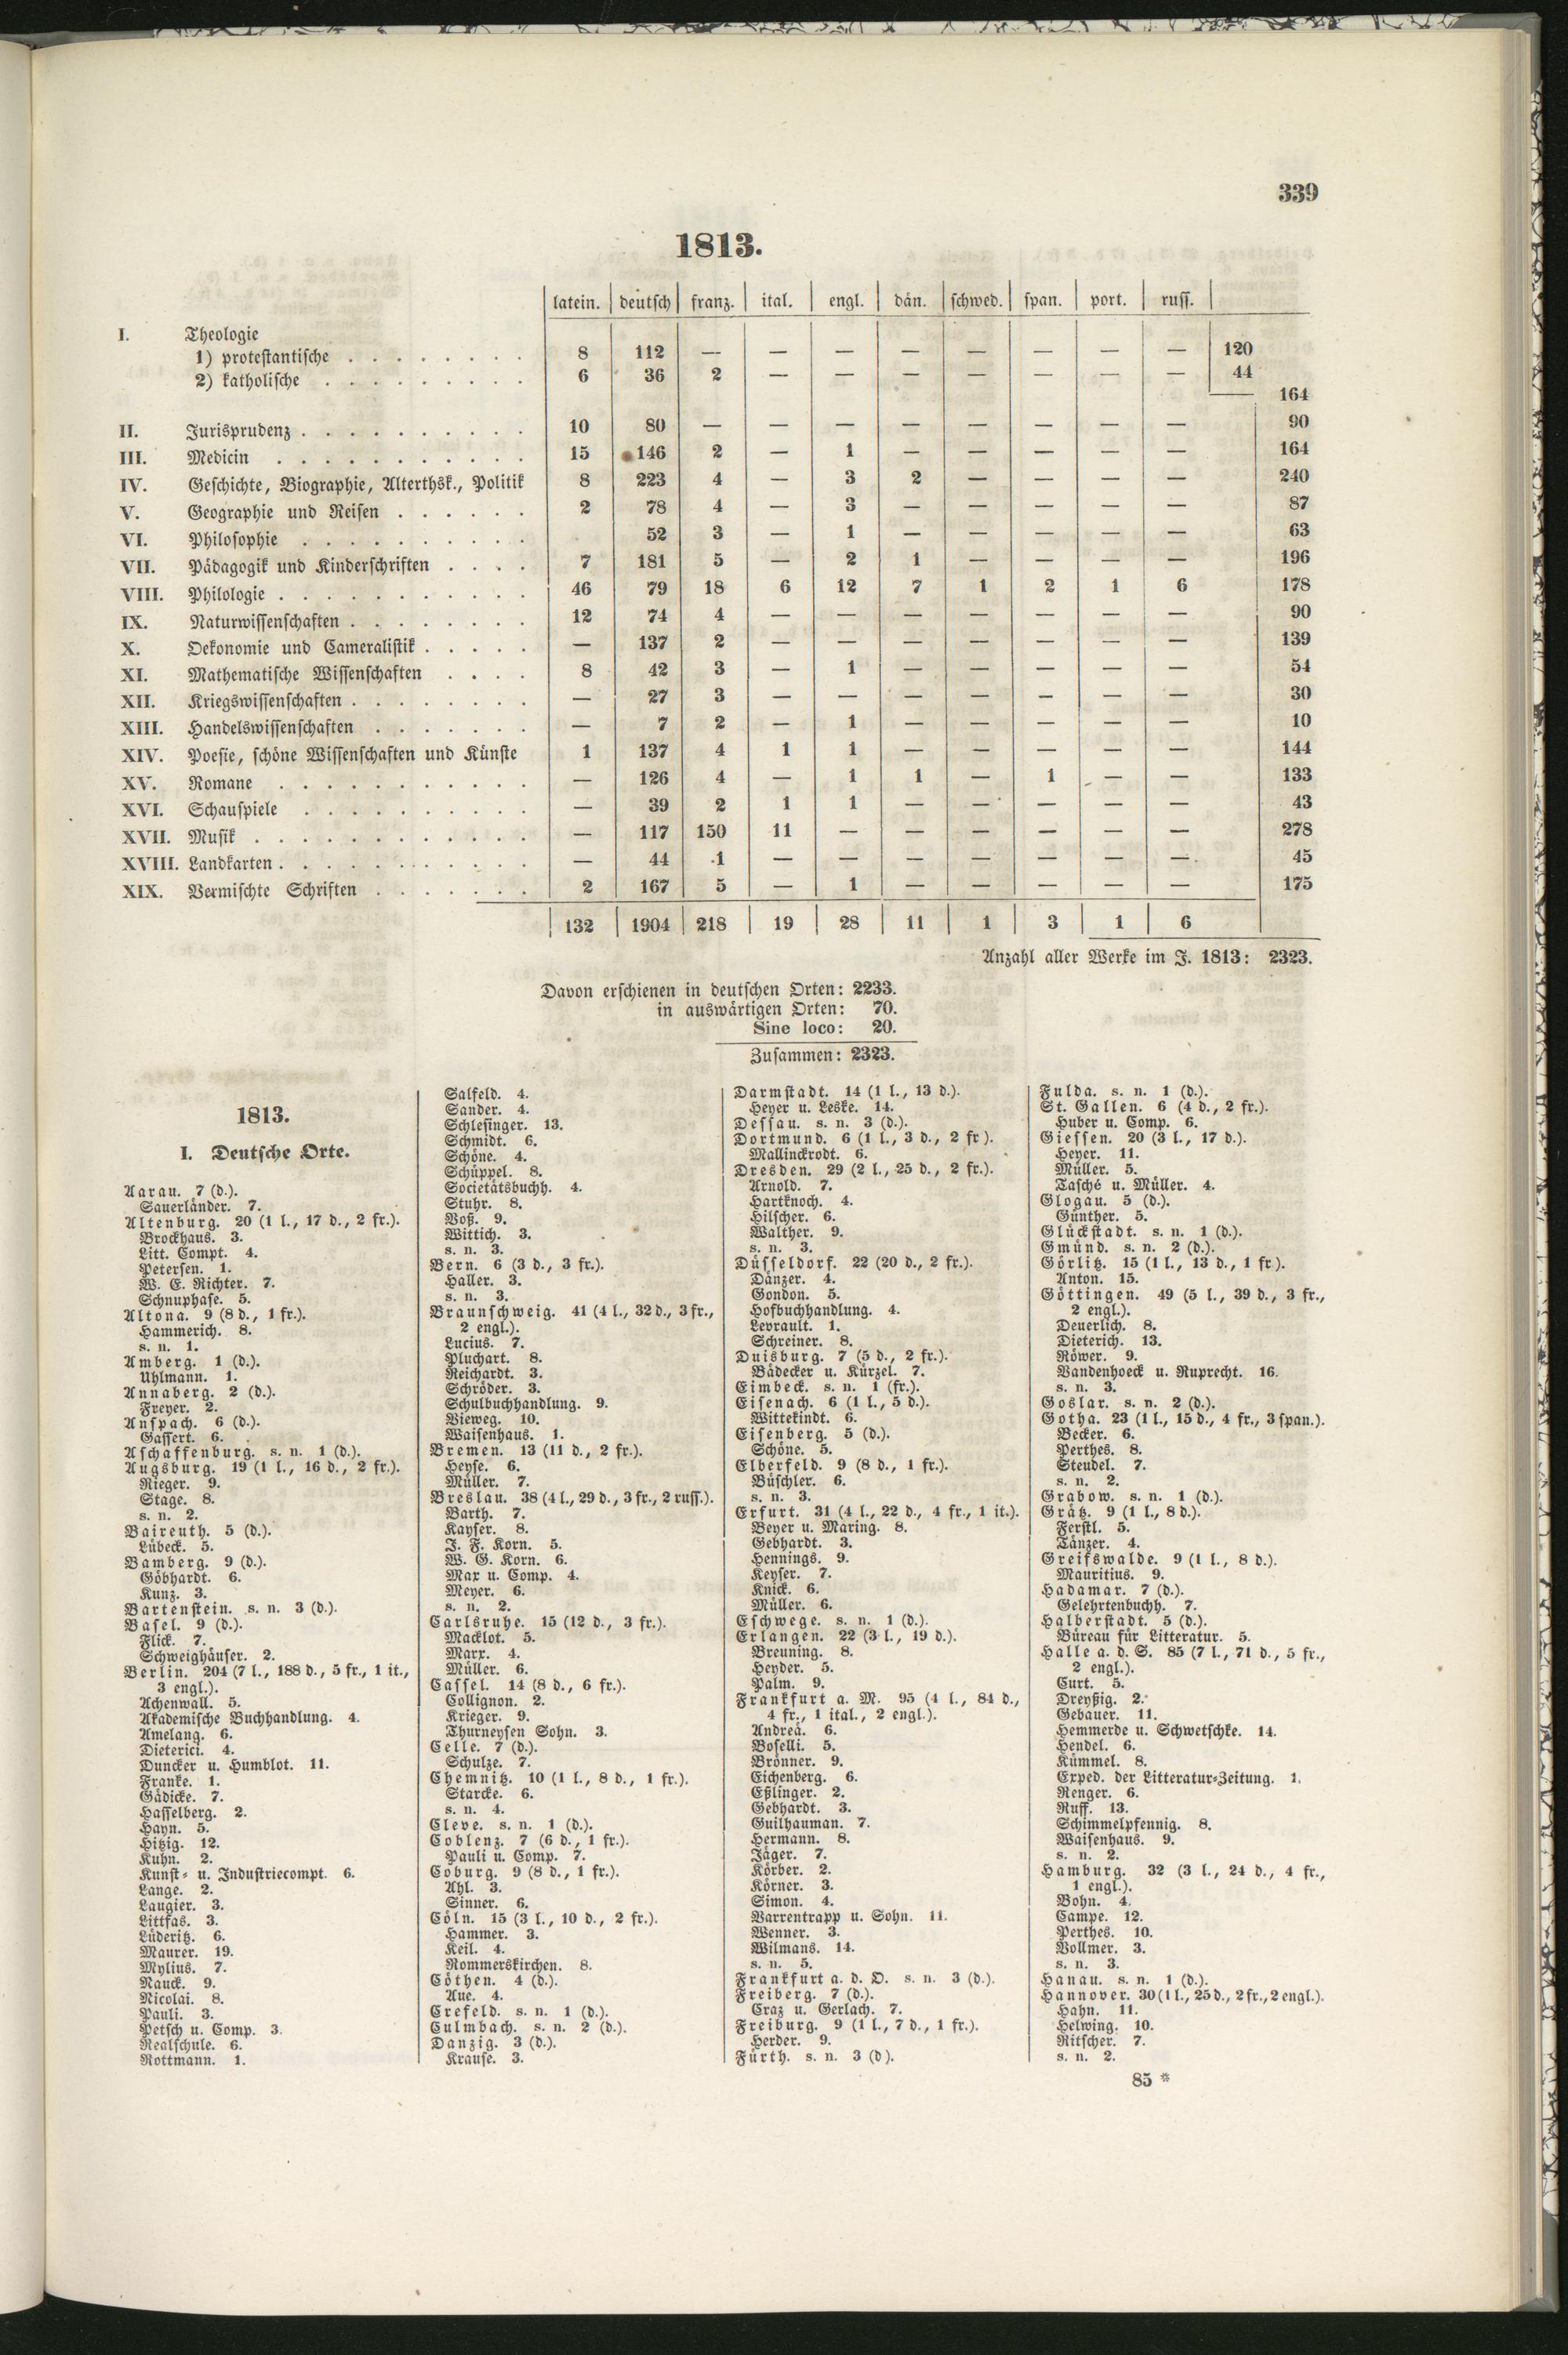 339
1813.
latein. deutsch franz. ital. engl. dän. schwed. span. port. russ.
I. Theologie
1) protestantische . . . . . . . . 8 112 — — — — — — — — 120
2) katholische . . . . . . . . . 6 36 2 — — — — — — — 44
164
II. Jurisprudenz . . . . . . . . . . 10 80 — — — — — — — — 90
III. Medicin . . . . . . . . . . . 15 146 2 — 1 — — — — — 164
IV. Geschichte, Biographie, Alterthsk., Politik 8 223 4 — 3 2 — — — — 240
V. Geographie und Reisen . . . . . . 2 78 4 — 3 — — — — — 87
VI. Philosophie . . . . . . . . . . 52 3 — 1 — — — — — 63
VII. Pädagogik und Kinderschriften . . . . 7 181 5 — 2 1 — — — — 196
VIII. Philologie . . . . . . . . . . . 46 79 18 6 12 7 1 2 1 6 178
IX. Naturwissenschaften . . . . . . . . 12 74 4 — — — — — — — 90
X. Oekonomie und Cameralistik . . . . . — 137 2 — — — — — — — 139
XI. Mathematische Wissenschaften . . . . 8 42 3 — 1 — — — — — 54
XII. Kriegswissenschaften . . . . . . . . — 27 3 — — — — — — — 30
XIII. Handelswissenschaften . . . . . . . — 7 2 — 1 — — — — — 10
XIV. Poesie, schöne Wissenschaften und Künste 1 137 4 1 1 — — — — — 144
XV. Romane . . . . . . . . . . . — 126 4 — 1 1 — 1 — — 133
XVI. Schauspiele . . . . . . . . . . — 39 2 1 1 — — — — — 43
XVII. Musik . . . . . . . . . . . . — 117 150 11 — — — — — — 278
XVIII. Landkarten . . . . . . . . . . . — 44 1 — — — — — — — 45
XIX. Vermischte Schriften . . . . . . . 2 167 5 — 1 — — — — — 175
132 1904 218 19 28 11 1 3 1 6
Anzahl aller Werke im J. 1813: 2323.
Davon erschienen in deutschen Orten: 2233.
in auswärtigen Orten: 70.
Sine loco: 20.
Zusammen: 2323.
1813.
I. Deutsche Orte.
Aarau. 7 (d.).
Sauerländer. 7.
Altenburg. 20 (1 l., 17 d., 2 fr.).
Brockhaus. 3.
Litt. Compt. 4.
Petersen. 1.
W. E. Richter. 7.
Schnuphase. 5.
Altona. 9 (8 d., 1 fr.).
Hammerich. 8.
s. n. 1.
Amberg. 1 (d.).
Uhlmann. 1.
Annaberg. 2 (d.).
Freyer. 2.
Anspach. 6 (d.).
Gassert. 6.
Aschaffenburg. s. n. 1 (d.).
Augsburg. 19 (1 l., 16 d., 2 fr.).
Rieger. 9.
Stage. 8.
s. n. 2.
Baireuth. 5 (d.).
Lübeck. 5.
Bamberg. 9 (d.).
Göbhardt. 6.
Kunz. 3.
Bartenstein. s. n. 3 (d.).
Basel. 9 (d.).
Flick. 7.
Schweighäuser. 2.
Berlin. 204 (7 l., 188 d., 5 fr., 1 it.,
3 engl.).
Achenwall. 5.
Akademische Buchhandlung. 4.
Amelang. 6.
Dieterici. 4.
Duncker u. Humblot. 11.
Franke. 1.
Gädicke. 7.
Hasselberg. 2.
Hayn. 5.
Hitzig. 12.
Kuhn. 2.
Kunst- u. Industriecompt. 6.
Lange. 2.
Laugier. 3.
Littfas. 3.
Lüderitz. 6.
Maurer. 19.
Mylius. 7.
Nauck. 9.
Nicolai. 8.
Pauli. 3.
Petsch u. Comp. 3.
Realschule. 6.
Rottmann. 1.
Salfeld. 4.
Sander. 4.
Schlesinger. 13.
Schmidt. 6.
Schöne. 4.
Schüppel. 8.
Societätsbuchh. 4.
Stuhr. 8.
Voß. 9.
Wittich. 3.
s. n. 3.
Bern. 6 (3 d., 3 fr.).
Haller. 3.
s. n. 3.
Braunschweig. 41 (4 l., 32 d., 3 fr.,
2 engl.).
Lucius. 7.
Pluchart. 8.
Reichardt. 3.
Schröder. 3.
Schulbuchhandlung. 9.
Vieweg. 10.
Waisenhaus. 1.
Bremen. 13 (11 d., 2 fr.).
Heyse. 6.
Müller. 7.
Breslau. 38 (4 l., 29 d., 3 fr., 2 russ.).
Barth. 7.
Kayser. 8.
J. F. Korn. 5.
W. G. Korn. 6.
Max u. Comp. 4.
Meyer. 6.
s. n. 2.
Carlsruhe. 15 (12 d., 3 fr.).
Macklot. 5.
Marx. 4.
Müller. 6.
Cassel. 14 (8 d., 6 fr.).
Collignon. 2.
Krieger. 9.
Thurneysen Sohn. 3.
Celle. 7 (d.).
Schulze. 7.
Chemnitz. 10 (1 l., 8 d., 1 fr.).
Starcke. 6.
s. n. 4.
Cleve. s. n. 1 (d.).
Coblenz. 7 (6 d., 1 fr.).
Pauli u. Comp. 7.
Coburg. 9 (8 d., 1 fr.).
Ahl. 3.
Sinner. 6.
Cöln. 15 (3 l., 10 d., 2 fr.).
Hammer. 3.
Keil. 4.
Rommerskirchen. 8.
Cöthen. 4 (d.).
Aue. 4.
Crefeld. s. n. 1 (d.).
Culmbach. s. n. 2 (d.).
Danzig. 3 (d.).
Krause. 3.
Darmstadt. 14 (1 l., 13 d.).
Heyer u. Leske. 14.
Dessau. s. n. 3 (d.).
Dortmund. 6 (1 l., 3 d., 2 fr).
Mallinckrodt. 6.
Dresden. 29 (2 l., 25 d., 2 fr.).
Arnold. 7.
Hartknoch. 4.
Hilscher. 6.
Walther. 9.
s. n. 3.
Düsseldorf. 22 (20 d., 2 fr.).
Dänzer. 4.
Gondon. 5.
Hofbuchhandlung. 4.
Levrault. 1.
Schreiner. 8.
Duisburg. 7 (5 d., 2 fr.).
Bädecker u. Kürzel. 7.
Eimbeck. s. n. 1 (fr.).
Eisenach. 6 (1 l., 5 d.).
Wittekindt. 6.
Eisenberg. 5 (d.).
Schöne. 5.
Elberfeld. 9 (8 d., 1 fr.).
Büschler. 6.
s. n. 3.
Erfurt. 31 (4 l., 22 d., 4 fr., 1 it.).
Beyer u. Maring. 8.
Gebhardt. 3.
Hennings. 9.
Keyser. 7.
Knick. 6.
Müller. 6.
Eschwege. s. n. 1 (d.).
Erlangen. 22 (3 l., 19 d.).
Breuning. 8.
Heyder. 5.
Palm. 9.
Frankfurt a. M. 95 (4 l., 84 d.,
4 fr., 1 ital., 2 engl.).
Andreä. 6.
Boselli. 5.
Brönner. 9.
Eichenberg. 6.
Eßlinger. 2.
Gebhardt. 3.
Guilhauman. 7.
Hermann. 8.
Jäger. 7.
Körber. 2.
Körner. 3.
Simon. 4.
Varrentrapp u. Sohn. 11.
Wenner. 3.
Wilmans. 14.
s. n. 5.
Frankfurt a. d. O. s. n. 3 (d.).
Freiberg. 7 (d.).
Craz u. Gerlach. 7.
Freiburg. 9 (1 l., 7 d., 1 fr.).
Herder. 9.
Fürth. s. n. 3 (d).
Fulda. s. n. 1 (d.).
St. Gallen. 6 (4 d., 2 fr.).
Huber u. Comp. 6.
Giessen. 20 (3 l., 17 d.).
Heyer. 11.
Müller. 5.
Tasché u. Müller. 4.
Glogau. 5 (d.).
Günther. 5.
Glückstadt. s. n. 1 (d.).
Gmünd. s. n. 2 (d.).
Görlitz. 15 (1 l., 13 d., 1 fr).
Anton. 15.
Göttingen. 49 (5 l., 39 d., 3 fr.,
2 engl.).
Deuerlich. 8.
Dieterich. 13.
Röwer. 9.
Vandenhoeck u. Ruprecht. 16.
s. n. 3.
Goslar. s. n. 2 (d.).
Gotha. 23 (1 l., 15 d., 4 fr., 3 span.).
Becker. 6.
Perthes. 8.
Steudel. 7.
s. n. 2.
Grabow. s. n. 1 (d.).
Grätz. 9 (1 l., 8 d.).
Ferstl. 5.
Tänzer. 4.
Greifswalde. 9 (1 l., 8 d.).
Mauritius. 9.
Hadamar. 7 (d.).
Gelehrtenbuchh. 7.
Halberstadt. 5 (d.).
Büreau für Litteratur. 5.
Halle a. d. S. 85 (7 l., 71 d., 5 fr.,
2 engl.).
Curt. 5.
Dreyßig. 2.
Gebauer. 11.
Hemmerde u. Schwetschke. 14.
Hendel. 6.
Kümmel. 8.
Exped. der Litteratur-Zeitung. 1.
Renger. 6.
Ruff. 13.
Schimmelpfennig. 8.
Waisenhaus. 9.
s. n. 2.
Hamburg. 32 (3 l., 24 d., 4 fr.,
1 engl.).
Bohn. 4.
Campe. 12.
Perthes. 10.
Vollmer. 3.
s. n. 3.
Hanau. s. n. 1 (d.).
Hannover. 30 (1 l., 25 d., 2 fr., 2 engl.).
Hahn. 11.
Helwing. 10.
Ritscher. 7.
s. n. 2.
85 *